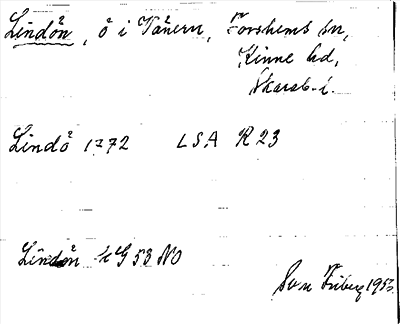 Lindön, ö i Vänern, Forshems sn,
Kinne hd,
Skarab. l.
Lindö 1772 LSA R 23
Lindön G 53 NO
Sven Friberg 1953